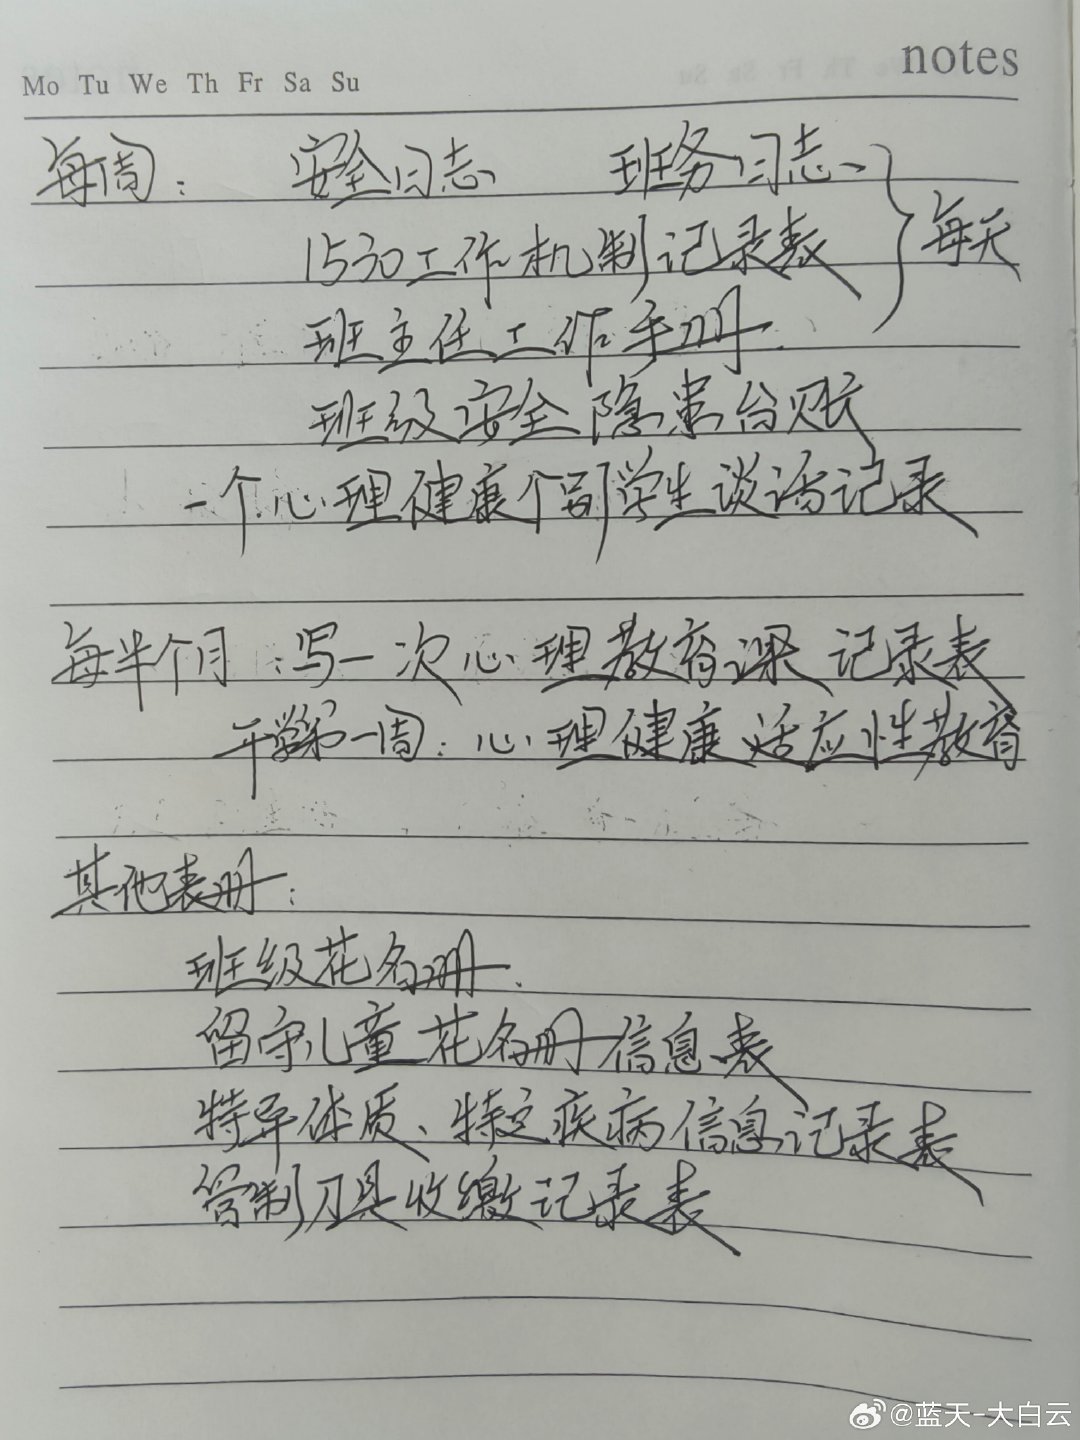 Mo Tu We Th Fr Sa Su
notes
每周： 安全日志 班务日志、
1530工作机制记录表 } 每天
班主任工作手册.
班级安全隐患台账
一个心理健康个别学生谈话记录
每半个月：写一次心理教育课记录表
开学第一周：心理健康适应性教育
其他表册：
班级花名册.
留守儿童花名册信息表
特异体质、特定疾病信息记录表
管制刀具收缴记录表
@蓝天-大白云